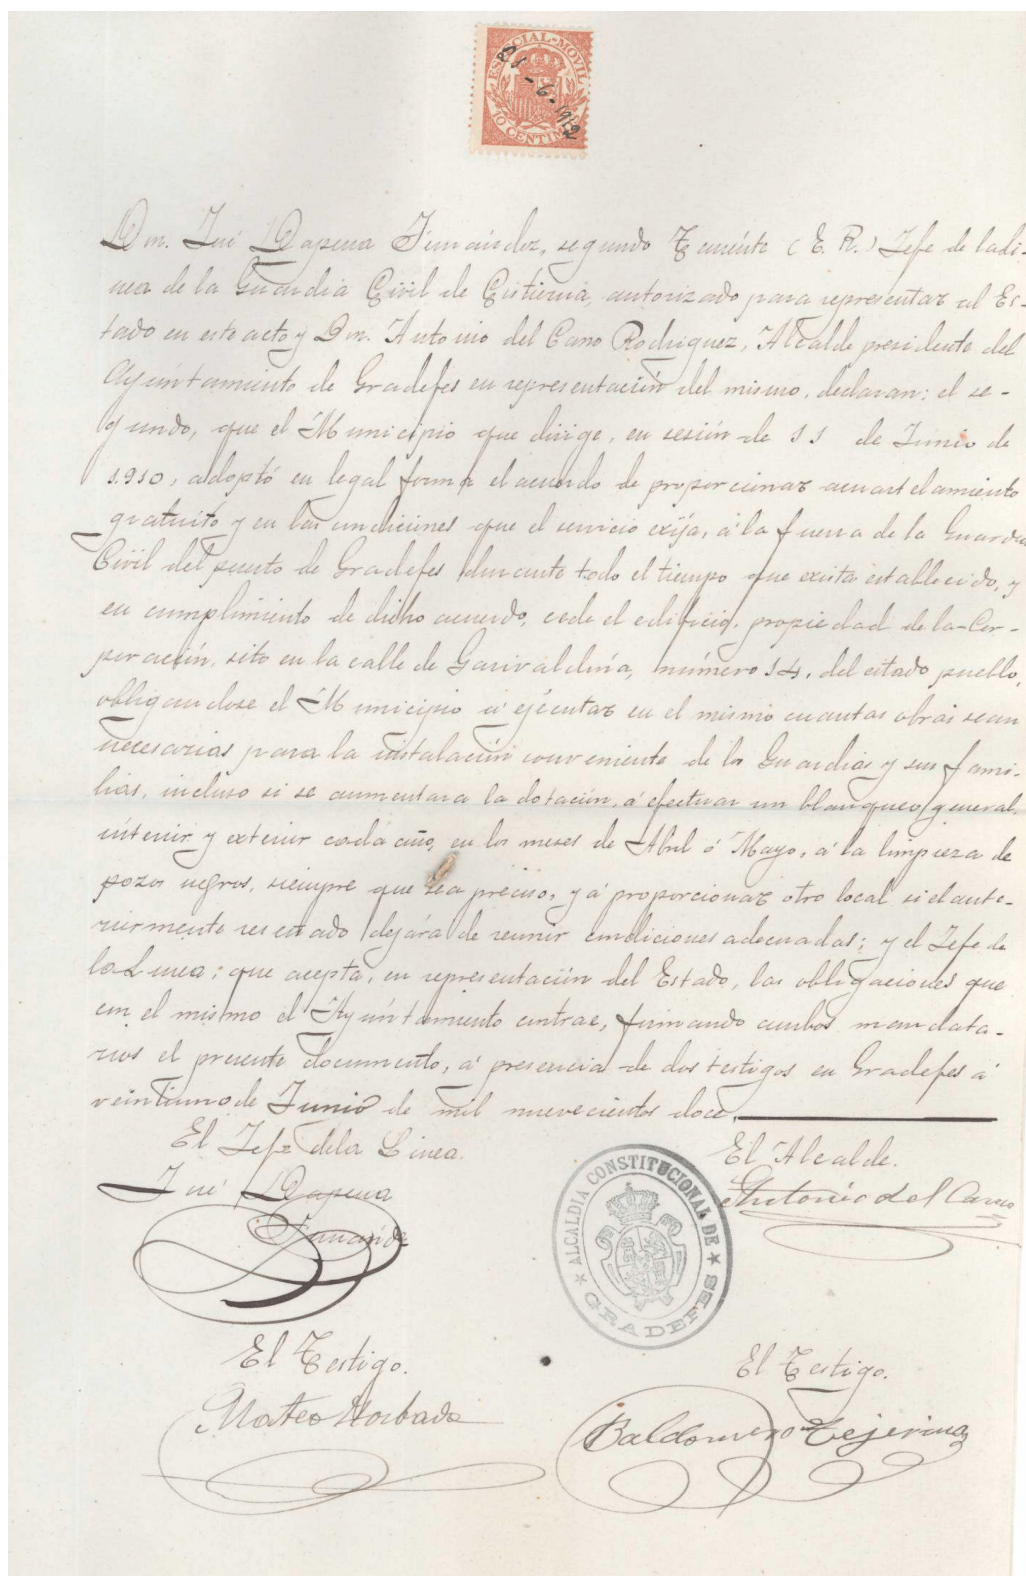 ESPECIAL MOVIL
21-6-1912
10 CENTIMOS
Dn. José Dapena Fernández, segundo Teniente (E. R.) Jefe de la lí-
nea de la Guardia Civil de Cistierna, autorizado para representar al Es-
tado en este acto y Dn. Antonio del Cano Rodriguez, Alcalde presidente del
Ayúntamiento de Gradefes en representación del mismo, declaran: el se-
gundo, que el Municipio que dirige, en sesión de 11 de Junio de
1.910, adoptó en legal forma el acuerdo de proporcionar acuartelamiento
gratuito y en las condiciones que el servicio exija, á la fuerza de la Guardia
Civil del puesto de Gradefes durante todo el tiempo que exista establecido, y
en cumplimiento de dicho acuerdo, cede el edificio, propiedad de la Cor-
poración, sito en la calle de número 14, del citado pueblo,
obligandose el Municipio á ejecutar en el mismo cuantas obras sean
necesarias para la instalación conveniente de los Guardias y sus fami-
lias, incluso si se aumentara la dotación, á efectuar un blanqueo general,
interior y exterior cada año, en los meses de Abril ó Mayo, á la limpieza de
pozos negros, siempre que sea preciso, y á proporcionar otro local si el ante-
riormente reseñado dejára de reunir condiciones adecuadas; y el Jefe de
la Linea; que acepta, en representación del Estado, las obligaciones que
con el mismo el Ayúntamiento contrae, firmando ambos mandata-
rios el presente documento, á presencia de dos testigos en Gradefes á
veintiuno de Junio de mil nuevecientos doce.
El Jefe de la Linea.
El Alcalde.
José Dapena
Fernández
Antonio del Cano
ALCALDIA CONSTITUCIONAL DE
GRADEFES
El Testigo.
El Testigo.
Mateo
Baldomero Tejerina